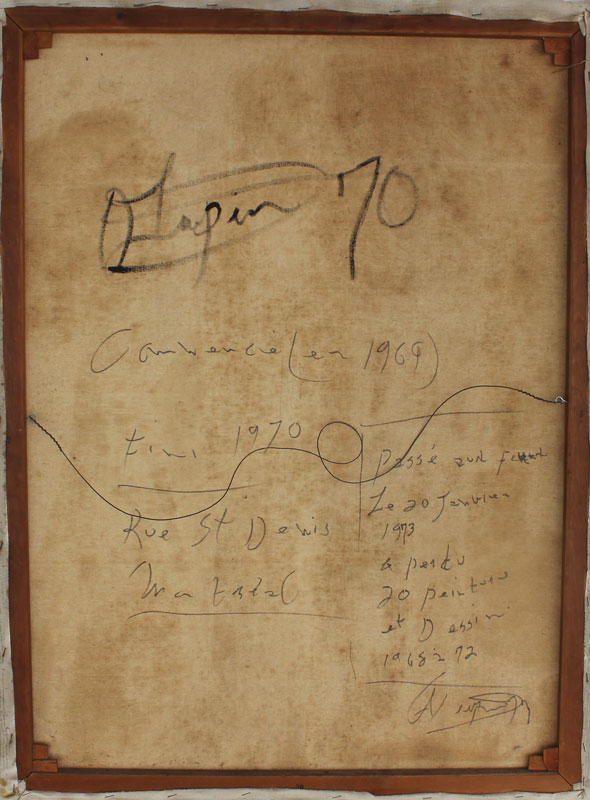 Lapin 70
Commencié (en 1969)
fini 1970
Rue St Denis
Montréal
Passé au
Le 20 Janvier
1973
a perdu
20 peinture
et Dessin
1968 à 72